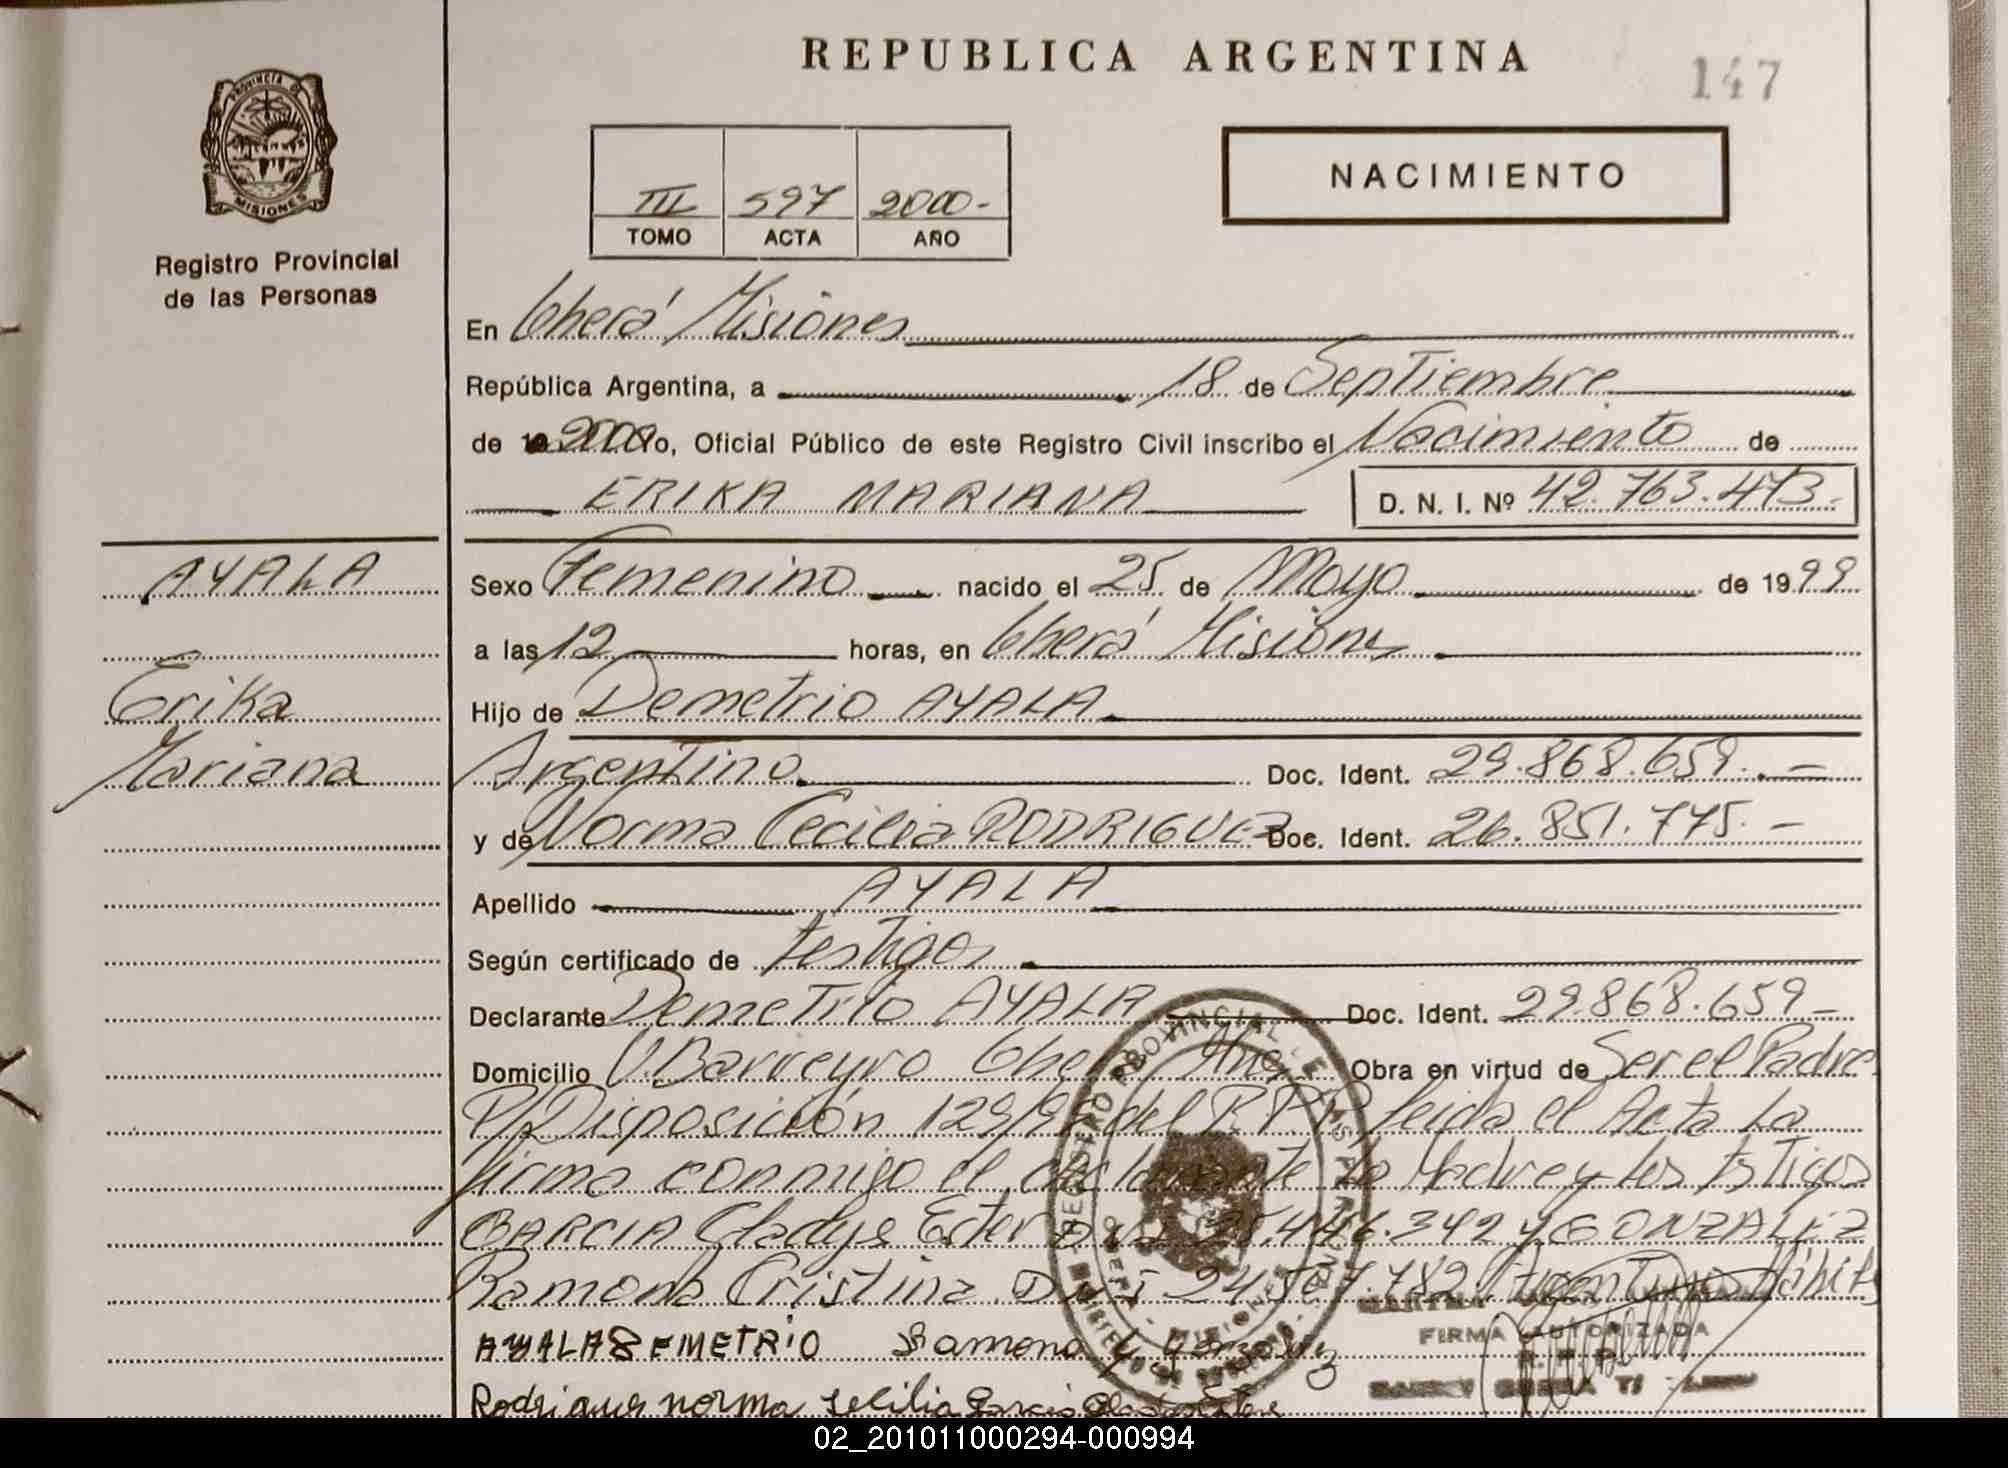 REPUBLICA ARGENTINA
147
PROVINCIA DE
MISIONES
Registro Provincial
de las Personas
III 597 2000-
TOMO ACTA AÑO
NACIMIENTO
En Oberá Misiones
República Argentina, a 18 de Septiembre
de 2000 Yo, Oficial Público de este Registro Civil inscribo el Nacimiento de
ERIKA MARIANA D. N. I. Nº 42.763.473.-
AYALA
Erika
Mariana
Sexo Femenino nacido el 25 de Mayo de 1999
a las 12 horas, en Oberá Misiones
Hijo de Demetrio AYALA
Argentino Doc. Ident. 29.868.659.-
y de Norma Cecilia RODRIGUEZ Doc. Ident. 26.851.775.-
Apellido AYALA
Según certificado de testigos
Declarante Demetrio AYALA Doc. Ident. 29.868.659-
Domicilio V. Barreyro Oberá Obra en virtud de Ser el Padre
P/Disposición 129/98 del R.P.P. leida el Acta la
firma conmigo el declarante la Madre y los testigos
BARCIA Gladys Ester 446.342 y GONZALEZ
Ramona Cristina D.N.I. 24.567.782
AYALA DEMETRIO Ramona
FIRMA AUTORIZADA
Rodriguez norma
02_201011000294-000994